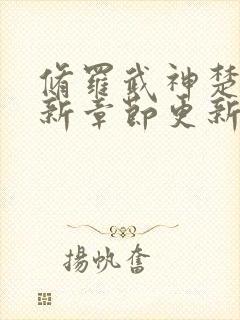 脩羅武神楚
新章節更新
揚帆奮